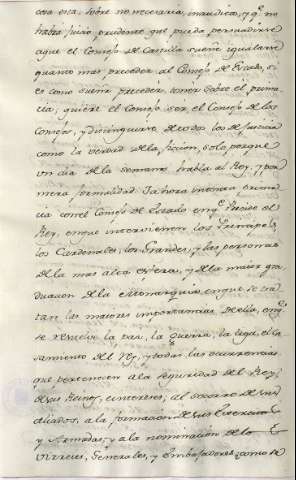 cosa esa, sobre no necesaria, inaudita, y q.e no
habrá juicio prudente que pueda persuadirse
a que el Consejo de Castilla sueñe igualarse
quanto mas preceder al Consejo de Estado, si
es como sueña preceder, tener sobre el prima-
cia, quiere el Consejo ser el Consejo de los
Consejos, y distinguirse de todos los de Justicia
como la verdad de la ficcion, solo porque
un dia de la semana habla al Rey, y por
mera formalidad. Y ahora intenta prima-
cia con el Consejo de Estado en q.e Preside el
Rey, en que intervienen los Principes,
los Cardenales, los Grandes, y las personas
de la mas alta esfera, y de la maior gra-
duacion de la Monarquia en que se tra-
tan las maiores importancias de ella, en q.e
se resuelve la paz, la guerra, la liga, el ca-
samiento del Rey, y todas las ocurrencias
que pertenecen a la seguridad del Rey,
de sus Reinos, e intereses, al socorro de sus
aliados, a la formacion de sus Exercitos
y Armadas, y a la nominacion de los
Virreyes, Generales, y Embajadores, como se